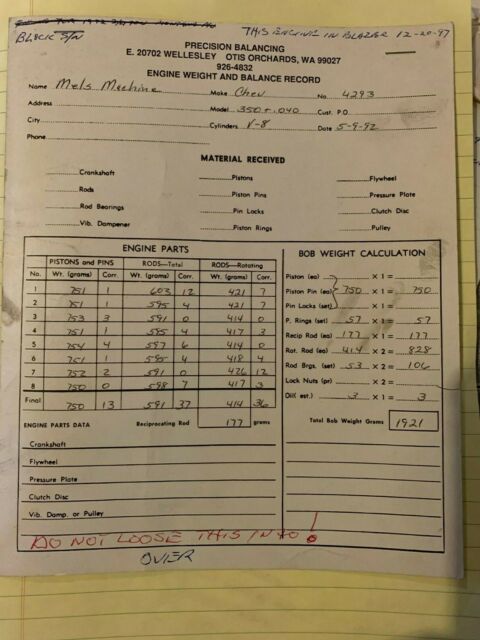 BLOCK S/N
THIS ENGINE IN BLAZER 12-20-97
PRECISION BALANCING
E. 20702 WELLESLEY OTIS ORCHARDS, WA 99027
926-4832
ENGINE WEIGHT AND BALANCE RECORD
Name Mels Machine Make Chev No. 4293
Address Model 350 + .040 Cust. P.O.
City Cylinders V-8 Date 5-9-92
Phone
MATERIAL RECEIVED
Crankshaft Pistons Flywheel
Rods Piston Pins Pressure Plate
Rod Bearings Pin Locks Clutch Disc
Vib. Dampener Piston Rings Pulley
ENGINE PARTS
No. PISTONS and PINS RODS—Total RODS—Rotating
Wt. (grams) Corr. Wt. (grams) Corr. Wt. (grams) Corr.
1 751 1 603 12 421 7
2 751 1 595 4 421 7
3 753 3 591 0 414 0
4 751 1 595 4 417 3
5 754 4 597 6 414 0
6 751 1 595 4 418 4
7 752 2 591 0 426 12
8 750 0 598 7 417 3
Final 750 13 591 37 414 36
ENGINE PARTS DATA Reciprocating Rod 177 grams
Crankshaft
Flywheel
Pressure Plate
Clutch Disc
Vib. Damp. or Pulley
BOB WEIGHT CALCULATION
Piston (ea) × 1 =
Piston Pin (ea) 750 × 1 = 750
Pin Locks (set) × 1 =
P. Rings (set) 57 × 1 = 57
Recip Rod (ea) 177 × 1 = 177
Rot. Rod (ea) 414 × 2 = 828
Rod Brgs. (set) 53 × 2 = 106
Lock Nuts (pr) × 2 =
Oil (est.) 3 × 1 = 3
Total Bob Weight Grams 1921
DO NOT LOOSE THIS INFO!
OVER